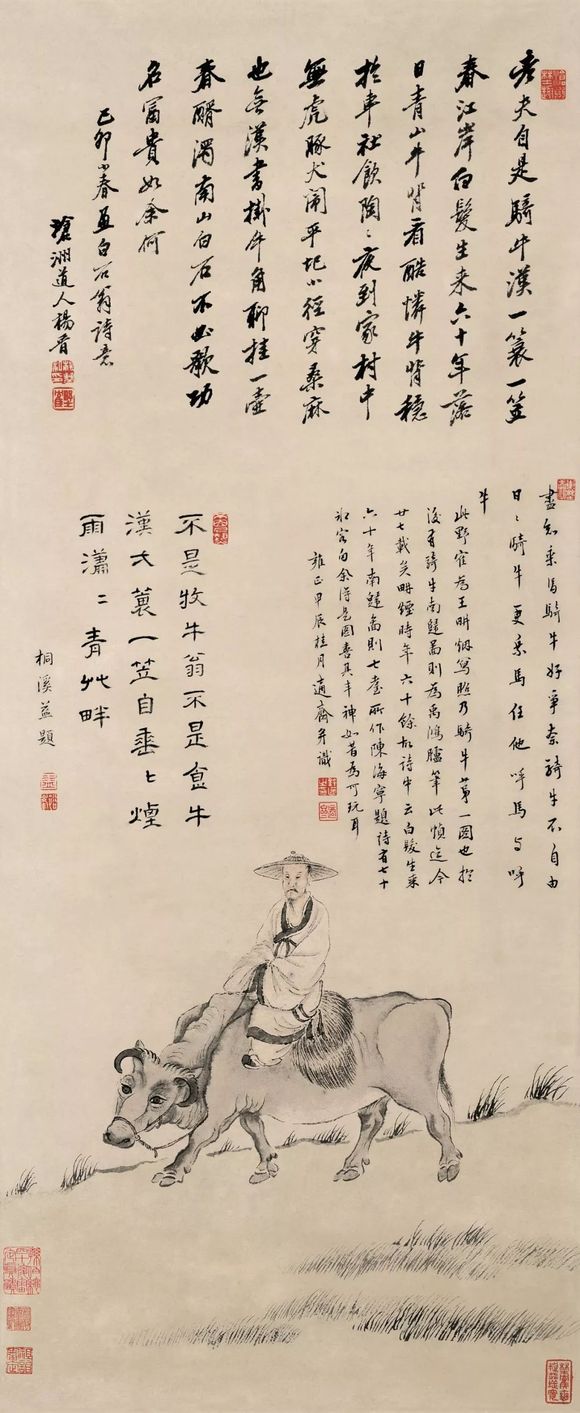 老夫自是騎牛漢一蓑一笠
春江岸白髮生來六十年落
日青山牛背看酷憐牛背穩
於車社飲陶〻夜到家村中
無虎豚犬鬧平圯小徑穿桑麻
也無漢書掛牛角聊挂一壺
春醑濁南山白石不必歌功
名富貴如余何
己卯小春畫白石翁詩意
滄洲道人楊晉
盡知乘馬騎牛好爭奈騎牛不自由
日〻騎牛更乘馬任他呼馬與呼
牛
此野寉為王畊烟寫照乃騎牛第一圖也於
後有騎牛南還圖則為禹鴻臚筆此幀迄今
廿七載矣畊煙時年六十餘故詩中云白髮生來
六十年南還圖則七耋所作陳海寧題詩有七十
客句余得是圖喜其丰神如昔為可玩耳
雍正甲辰桂月適齋并識
不是牧牛翁不是食牛
漢弌蓑一笠自垂〻煙
雨瀟〻青艸畔
桐溪益題